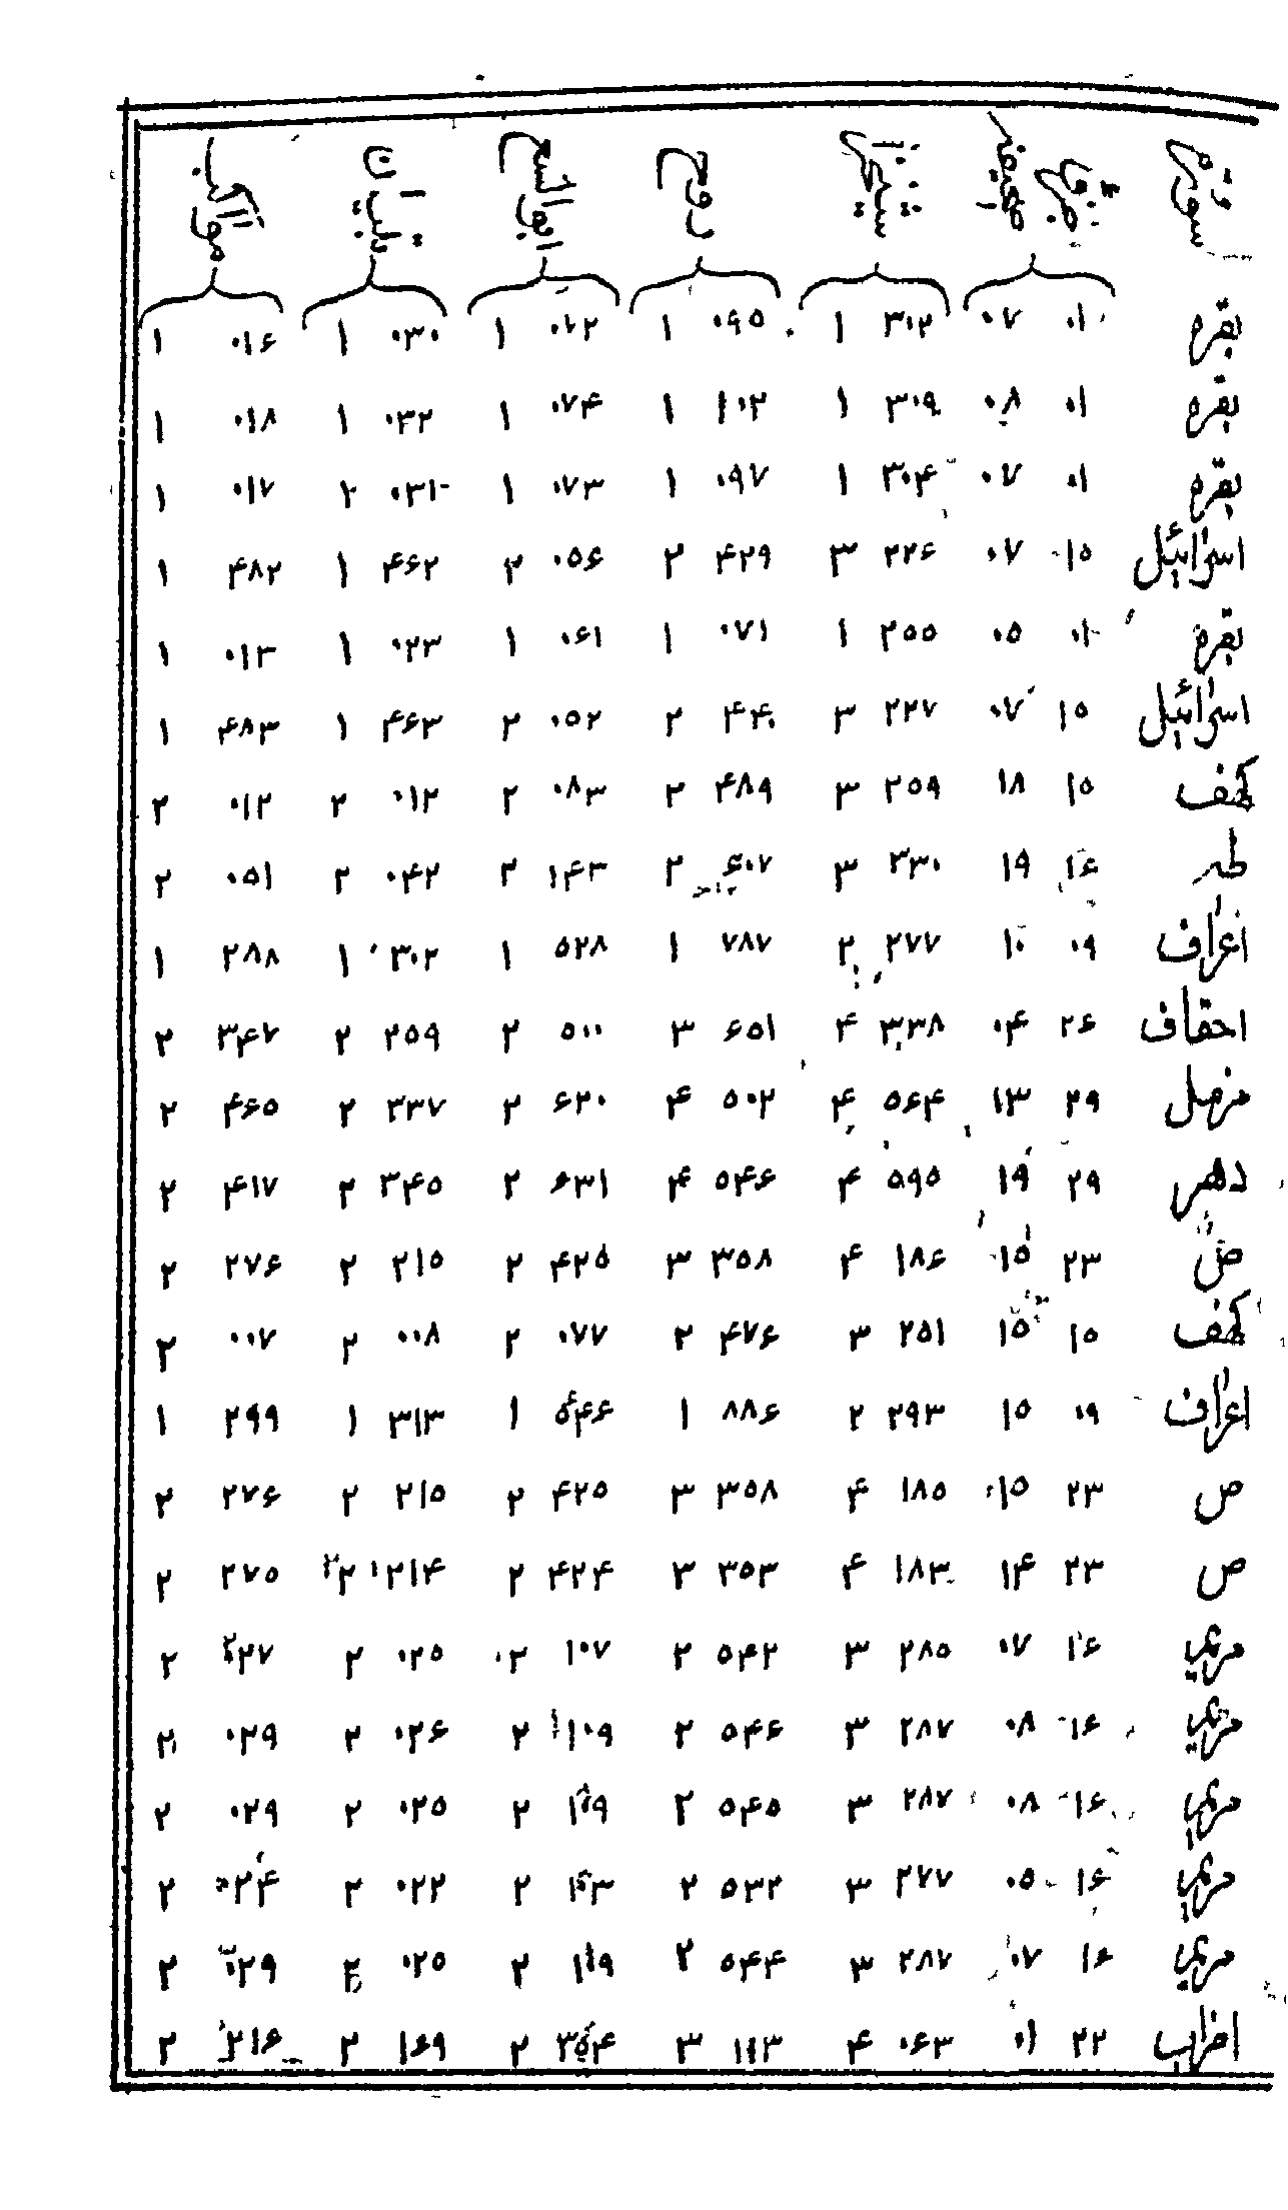 سورة جزء صفحه شیخزاده روح ابو السعود تبیان مواکب
بقره ۰۱ ۰۷ ۳۰۲ ۱ ۰۹۵ ۱ ۰۷۲ ۱ ۰۳۰ ۱ ۰۱۶ ۱
بقره ۰۱ ۰۸ ۳۰۹ ۱ ۱۰۲ ۱ ۰۷۴ ۱ ۰۳۲ ۱ ۰۱۸ ۱
بقره ۰۱ ۰۷ ۳۰۴ ۱ ۰۹۷ ۱ ۰۷۳ ۱ ۰۳۱ ۲ ۰۱۷ ۱
اسرائیل ۱۵ ۰۷ ۲۲۶ ۳ ۴۲۹ ۲ ۰۵۶ ۲ ۴۶۲ ۱ ۴۸۲ ۱
بقره ۰۱ ۰۵ ۲۵۵ ۱ ۰۷۱ ۱ ۰۶۱ ۱ ۰۲۳ ۱ ۰۱۳ ۱
اسرائیل ۱۵ ۰۷ ۲۲۷ ۳ ۴۴۰ ۲ ۰۵۲ ۲ ۴۶۳ ۱ ۴۸۳ ۱
کهف ۱۵ ۱۸ ۲۵۹ ۳ ۴۸۹ ۲ ۰۸۳ ۲ ۰۱۲ ۲ ۰۱۲ ۲
طه ۱۶ ۱۹ ۳۳۰ ۳ ۶۰۷ ۲ ۱۴۳ ۲ ۰۴۲ ۲ ۰۵۱ ۲
اعراف ۰۹ ۱۰ ۲۷۷ ۲ ۷۸۷ ۱ ۵۲۸ ۱ ۳۰۲ ۱ ۲۸۸ ۱
احقاف ۲۶ ۰۴ ۳۳۸ ۴ ۶۵۱ ۳ ۵۰۰ ۲ ۲۵۹ ۲ ۳۴۷ ۲
مزمل ۲۹ ۱۳ ۵۶۴ ۴ ۵۰۲ ۴ ۶۲۰ ۲ ۳۳۷ ۲ ۴۶۵ ۲
دهر ۲۹ ۱۹ ۵۹۵ ۴ ۵۴۶ ۴ ۶۳۱ ۲ ۳۴۵ ۲ ۴۱۷ ۲
ص ۲۳ ۱۵ ۱۸۶ ۴ ۳۵۸ ۳ ۴۲۵ ۲ ۲۱۵ ۲ ۲۷۶ ۲
کهف ۱۵ ۱۵ ۲۵۱ ۳ ۴۷۶ ۲ ۰۷۷ ۲ ۰۰۸ ۲ ۰۰۷ ۲
اعراف ۰۹ ۱۵ ۲۹۳ ۲ ۸۸۶ ۱ ۵۴۶ ۱ ۳۱۳ ۱ ۲۹۹ ۱
ص ۲۳ ۱۵ ۱۸۵ ۴ ۳۵۸ ۳ ۴۲۵ ۲ ۲۱۵ ۲ ۲۷۶ ۲
ص ۲۳ ۱۴ ۱۸۳ ۴ ۳۵۳ ۳ ۴۲۴ ۲ ۲۱۴ ۲ ۲۷۵ ۲
مریم ۱۶ ۰۷ ۲۸۵ ۳ ۵۴۲ ۲ ۱۰۷ ۲ ۰۲۵ ۲ ۰۲۷ ۲
مریم ۱۶ ۰۸ ۲۸۷ ۳ ۵۴۶ ۲ ۱۰۹ ۲ ۰۲۶ ۲ ۰۲۹ ۲
مریم ۱۶ ۰۸ ۲۸۷ ۳ ۵۴۵ ۲ ۱۰۹ ۲ ۰۲۵ ۲ ۰۲۹ ۲
مریم ۱۶ ۰۵ ۲۷۷ ۳ ۵۳۲ ۲ ۱۰۳ ۲ ۰۲۲ ۲ ۰۲۴ ۲
مریم ۱۶ ۰۷ ۲۸۷ ۳ ۵۴۴ ۲ ۱۰۹ ۲ ۰۲۵ ۲ ۰۲۹ ۲
احزاب ۲۲ ۰۱ ۰۶۳ ۴ ۱۱۳ ۳ ۳۵۴ ۲ ۱۶۹ ۲ ۲۱۶ ۲